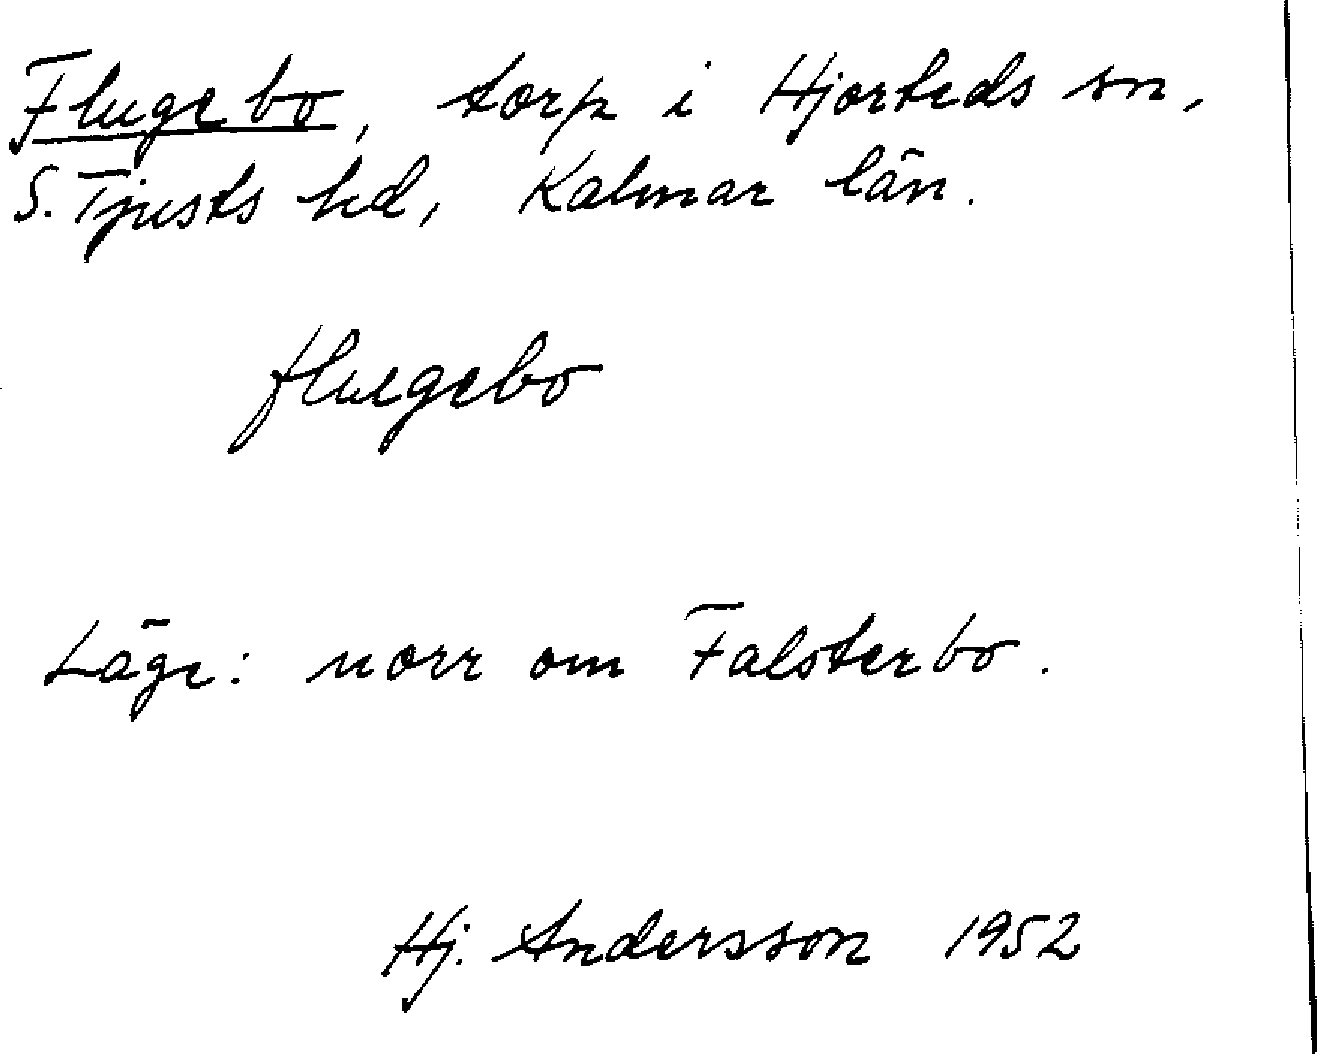 Flugebo, torp i Hjorteds sn,
S. Tjusts hd, Kalmar län.
flugebo
Läge: norr om Falsterbo.
Hj. Andersson 1952